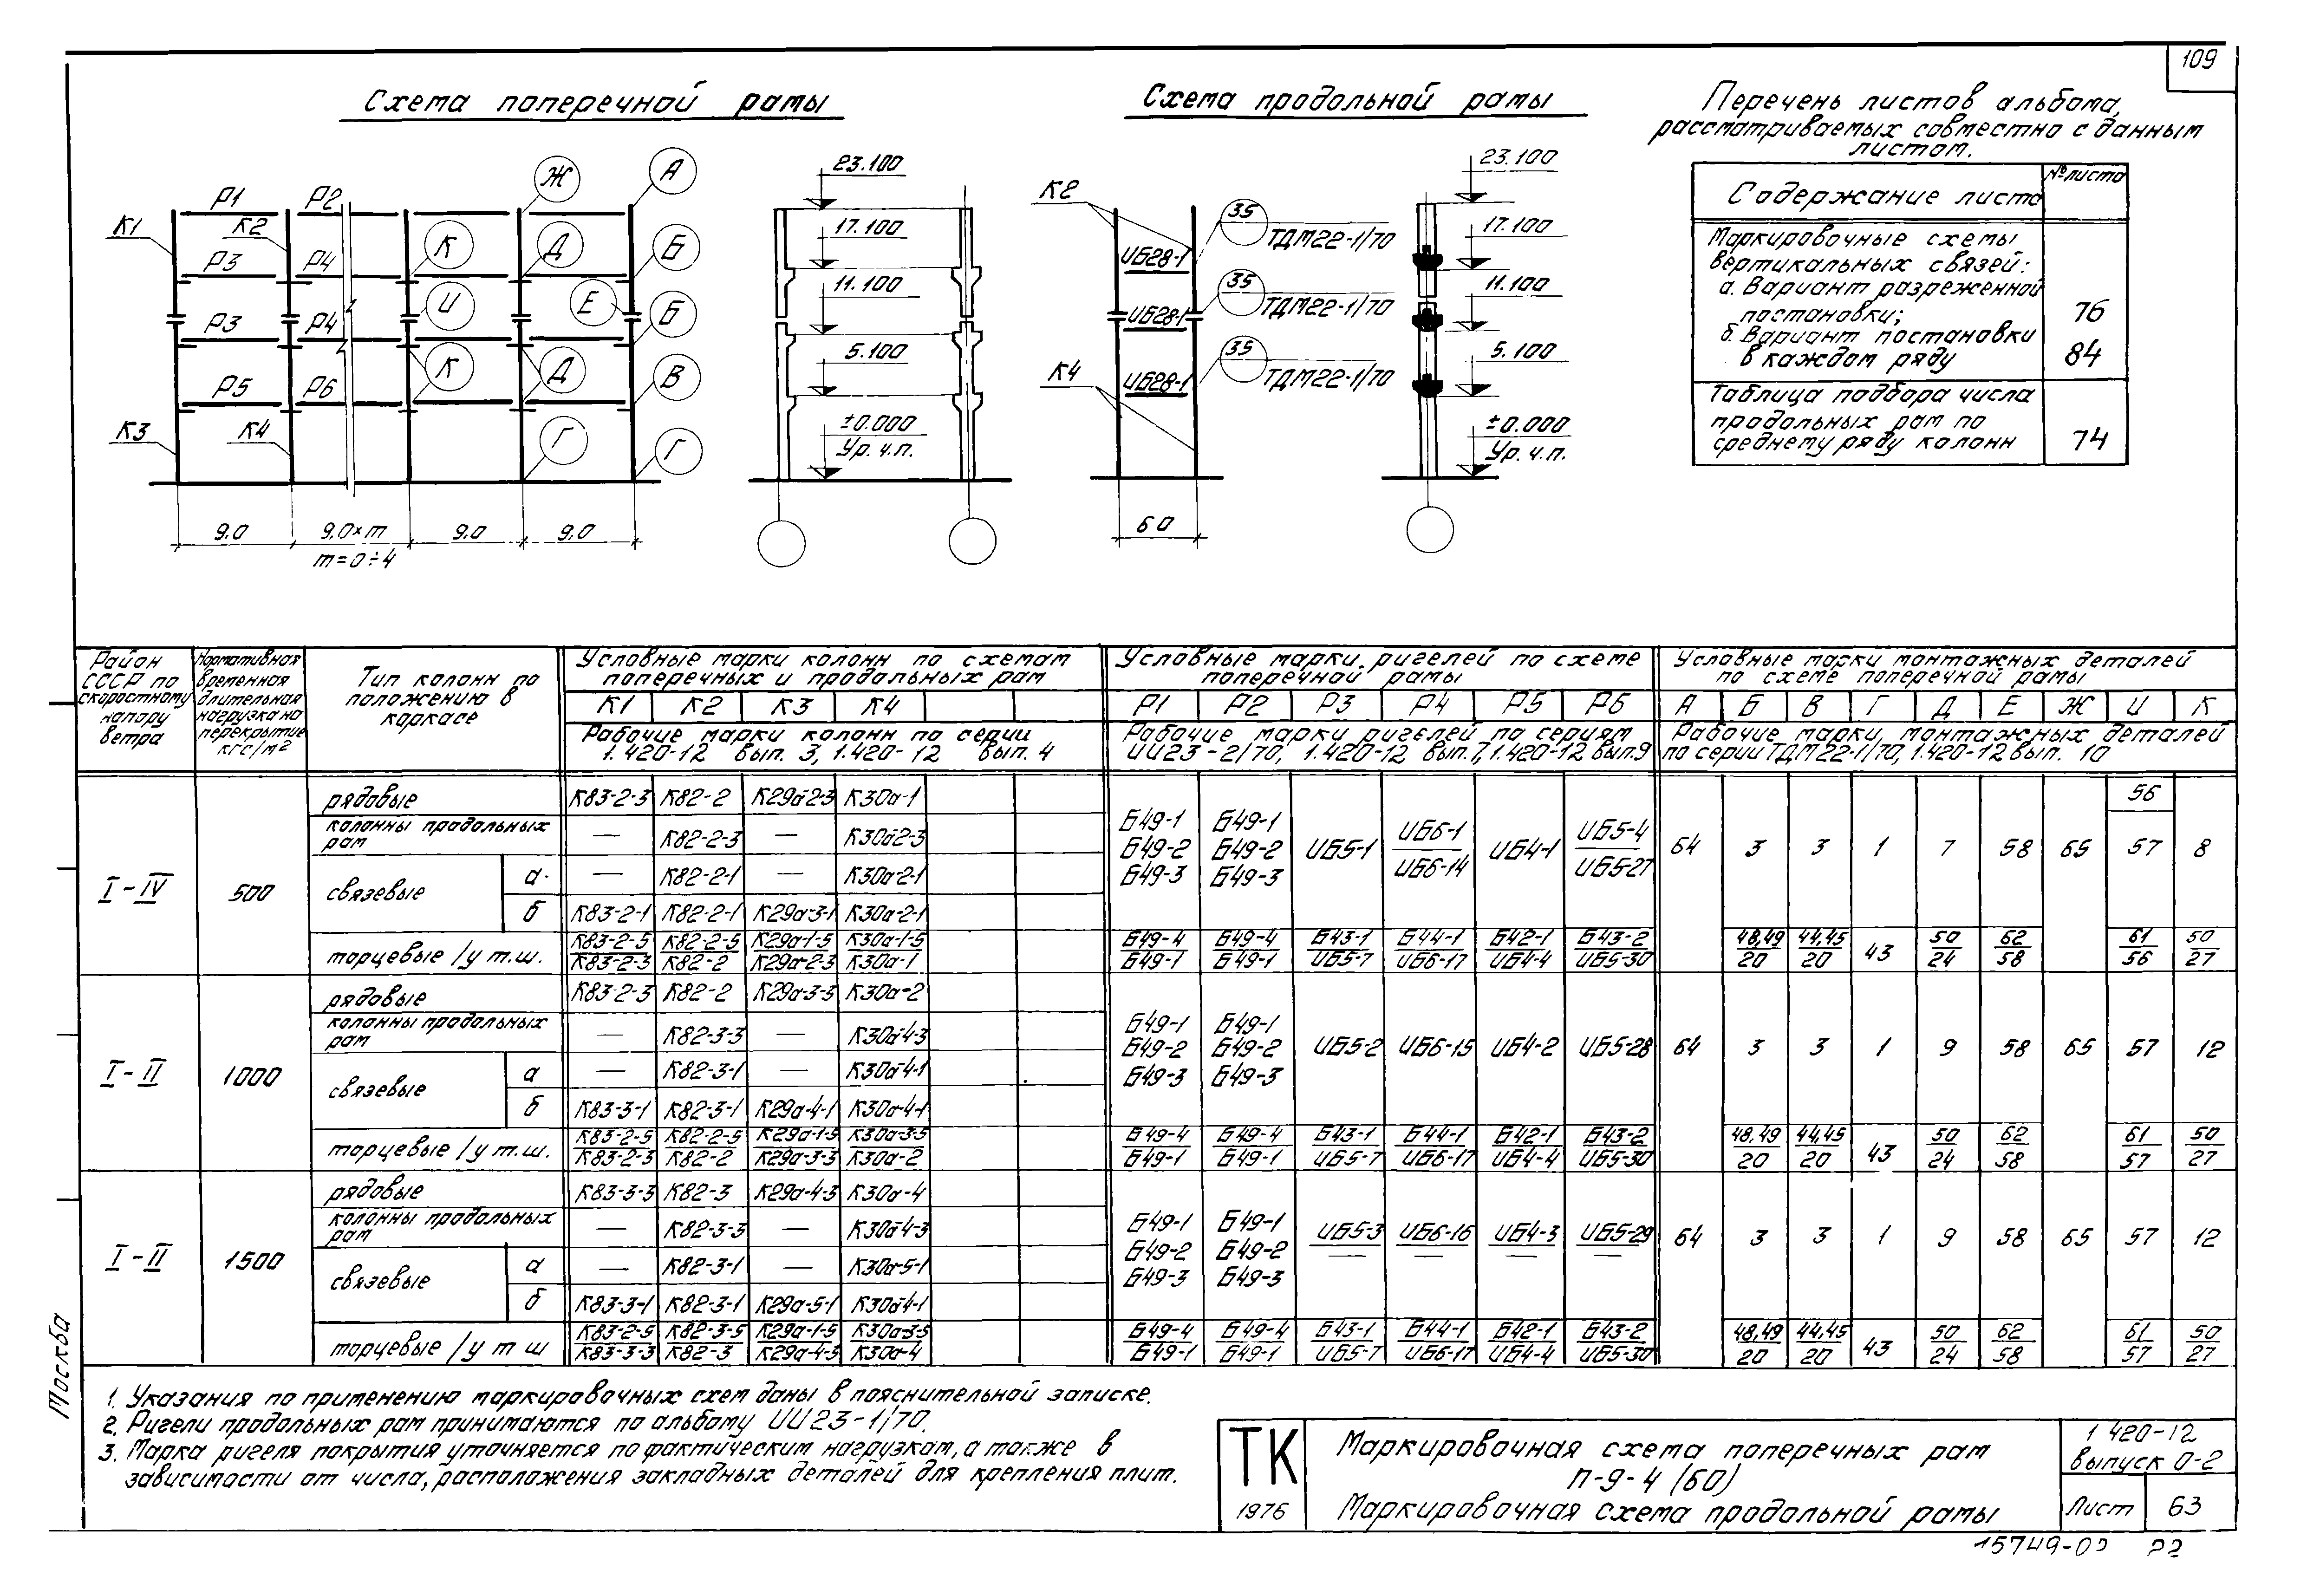 109
Схема поперечной рамы
Схема продольной рамы
Перечень листов альбома,
рассматриваемых совместно с данным
листом.
Содержание листа
№ листа
Маркировочные схемы
вертикальных связей:
а. Вариант разреженной
постановки;
76
б. Вариант постановки
в каждом ряду
84
Таблица подбора числа
продольных рам по
среднему ряду колонн
74
Р1 Р2 Ж А
К1 К2 К Д Б
Р3 Р4
И Е Б
Р3 Р4
К Д В
Р5 Р6
К3 К4 Г Г
9,0 9,0×m 9,0 9,0
m=0÷4
23.100
17.100
11.100
5.100
±0.000
Ур. ч.п.
К2
К4
ИБ28-1
ИБ28-1
ИБ28-1
35
ТДМ22-1/70
35
ТДМ22-1/70
35
ТДМ22-1/70
60
23.100
17.100
11.100
5.100
±0.000
Ур. ч.п.
Район
СССР по
скоростному
напору
ветра
Нормативная
временная
длительная
нагрузка на
перекрытие
кгс/м²
Тип колонн по
положению в
каркасе
Условные марки колонн по схемам
поперечных и продольных рам
К1 К2 К3 К4
Рабочие марки колонн по серии
1.420-12 вып. 3, 1.420-12 вып. 4
Условные марки ригелей по схеме
поперечной рамы
Р1 Р2 Р3 Р4 Р5 Р6
Рабочие марки ригелей по сериям
ИИ23-2/70, 1.420-12 вып.7, 1.420-12 вып.9
Условные марки монтажных деталей
по схеме поперечной рамы
А Б В Г Д Е Ж И К
Рабочие марки монтажных деталей
по серии ТДМ22-1/70, 1.420-12 вып. 10
I-IV
500
рядовые К83-2-3 К82-2 К29а2-3 К30а-1
колонны продольных
рам — К82-2-3 — К30а2-3
связевые
а. — К82-2-1 — К30а-2-1
б К83-2-1 К82-2-1 К29а-3-1 К30а-2-1
Б49-1 Б49-1
Б49-2 Б49-2
Б49-3 Б49-3
ИБ5-1
ИБ6-1
ИБ6-14
ИБ4-1
ИБ5-4
ИБ5-27
56
64 3 3 1 7 58 65 57 8
торцевые /у т.ш.
К83-2-5 К82-2-5 К29а-1-5 К30а-1-5 Б49-4 Б49-4 Б43-1 Б44-1 Б42-1 Б43-2 48,49 44,45 43 50 62 61 50
К83-2-3 К82-2 К29а-2-3 К30а-1 Б49-1 Б49-1 ИБ5-7 ИБ6-17 ИБ4-4 ИБ5-30 20 20 24 58 56 27
I-II
1000
рядовые К83-2-3 К82-2 К29а-3-3 К30а-2
колонны продольных
рам — К82-3-3 — К30а4-3
связевые
а — К82-3-1 — К30а4-1
б К83-3-1 К82-3-1 К29а-4-1 К30а-4-1
Б49-1 Б49-1
Б49-2 Б49-2
Б49-3 Б49-3
ИБ5-2 ИБ6-15 ИБ4-2 ИБ5-28
64 3 3 1 9 58 65 57 12
торцевые /у т.ш.
К83-2-5 К82-2-5 К29а-1-5 К30а-3-5 Б49-4 Б49-4 Б43-1 Б44-1 Б42-1 Б43-2 48,49 44,45 43 50 62 61 50
К83-2-3 К82-2 К29а-3-3 К30а-2 Б49-1 Б49-1 ИБ5-7 ИБ6-17 ИБ4-4 ИБ5-30 20 20 24 58 57 27
I-II
1500
рядовые К83-3-3 К82-3 К29а-4-3 К30а-4
колонны продольных
рам — К82-3-3 — К30а4-3
связевые
а — К82-3-1 — К30а-5-1
б К83-3-1 К82-3-1 К29а-5-1 К30а4-1
Б49-1 Б49-1
Б49-2 Б49-2
Б49-3 Б49-3
ИБ5-3 ИБ6-16 ИБ4-3 ИБ5-29
— — — —
64 3 3 1 9 58 65 57 12
торцевые /у т ш
К83-2-5 К82-3-5 К29а-1-5 К30а-3-5 Б49-4 Б49-4 Б43-1 Б44-1 Б42-1 Б43-2 48,49 44,45 43 50 62 61 50
К83-3-3 К82-3 К29а-4-3 К30а-4 Б49-1 Б49-1 ИБ5-7 ИБ6-17 ИБ4-4 ИБ5-30 20 20 24 58 57 27
Москва
1. Указания по применению маркировочных схем даны в пояснительной записке.
2. Ригели продольных рам принимаются по альбому ИИ23-1/70.
3. Марка ригеля покрытия уточняется по фактическим нагрузкам, а также в
зависимости от числа, расположения закладных деталей для крепления плит.
ТК
1976
Маркировочная схема поперечных рам
П-9-4 (60)
Маркировочная схема продольной рамы
1 420-12
выпуск 0-2
Лист 63
15749-0